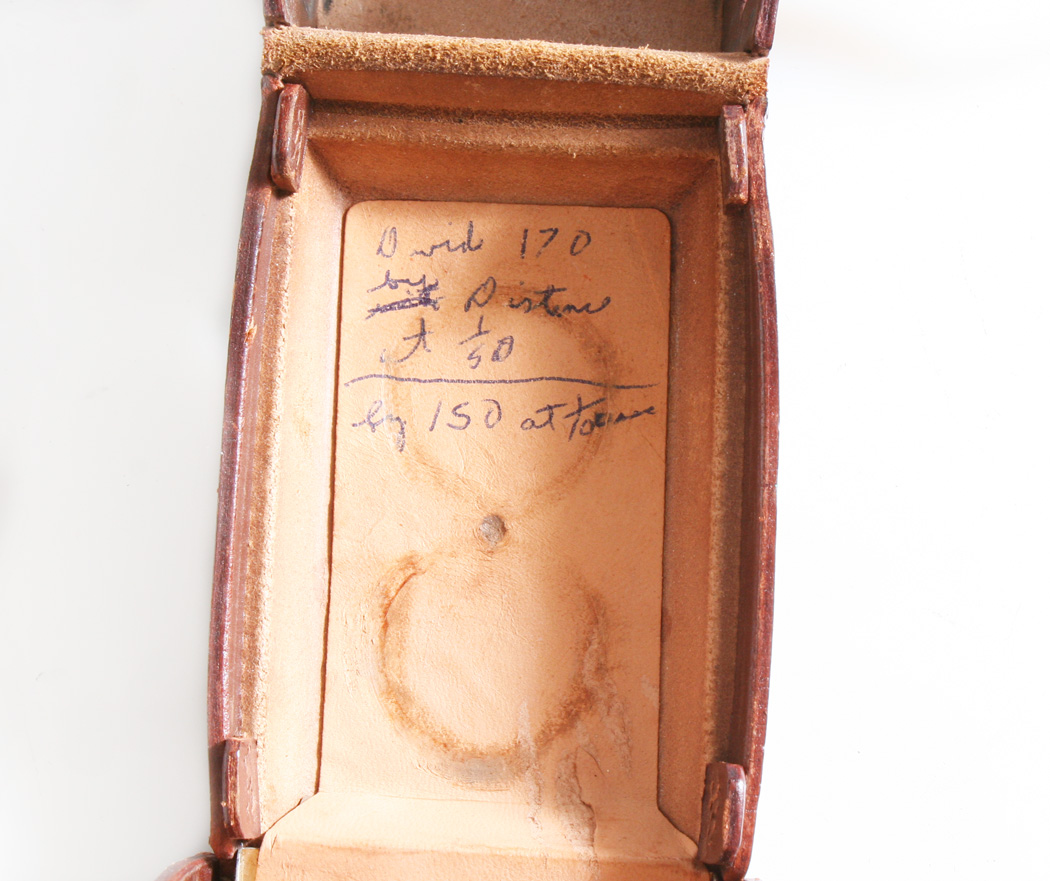 Divid 170
by Distance
at 1/50
by 150 at